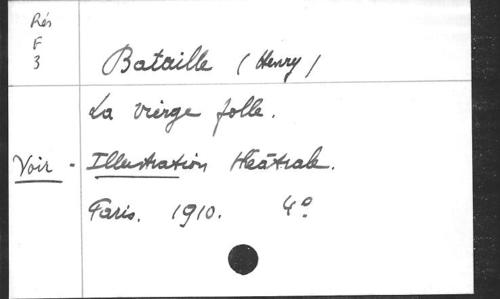 Rés
F
3
Bataille (Henry)
La vierge folle.
Voir - Illustration théâtrale.
Paris. 1910. 4º